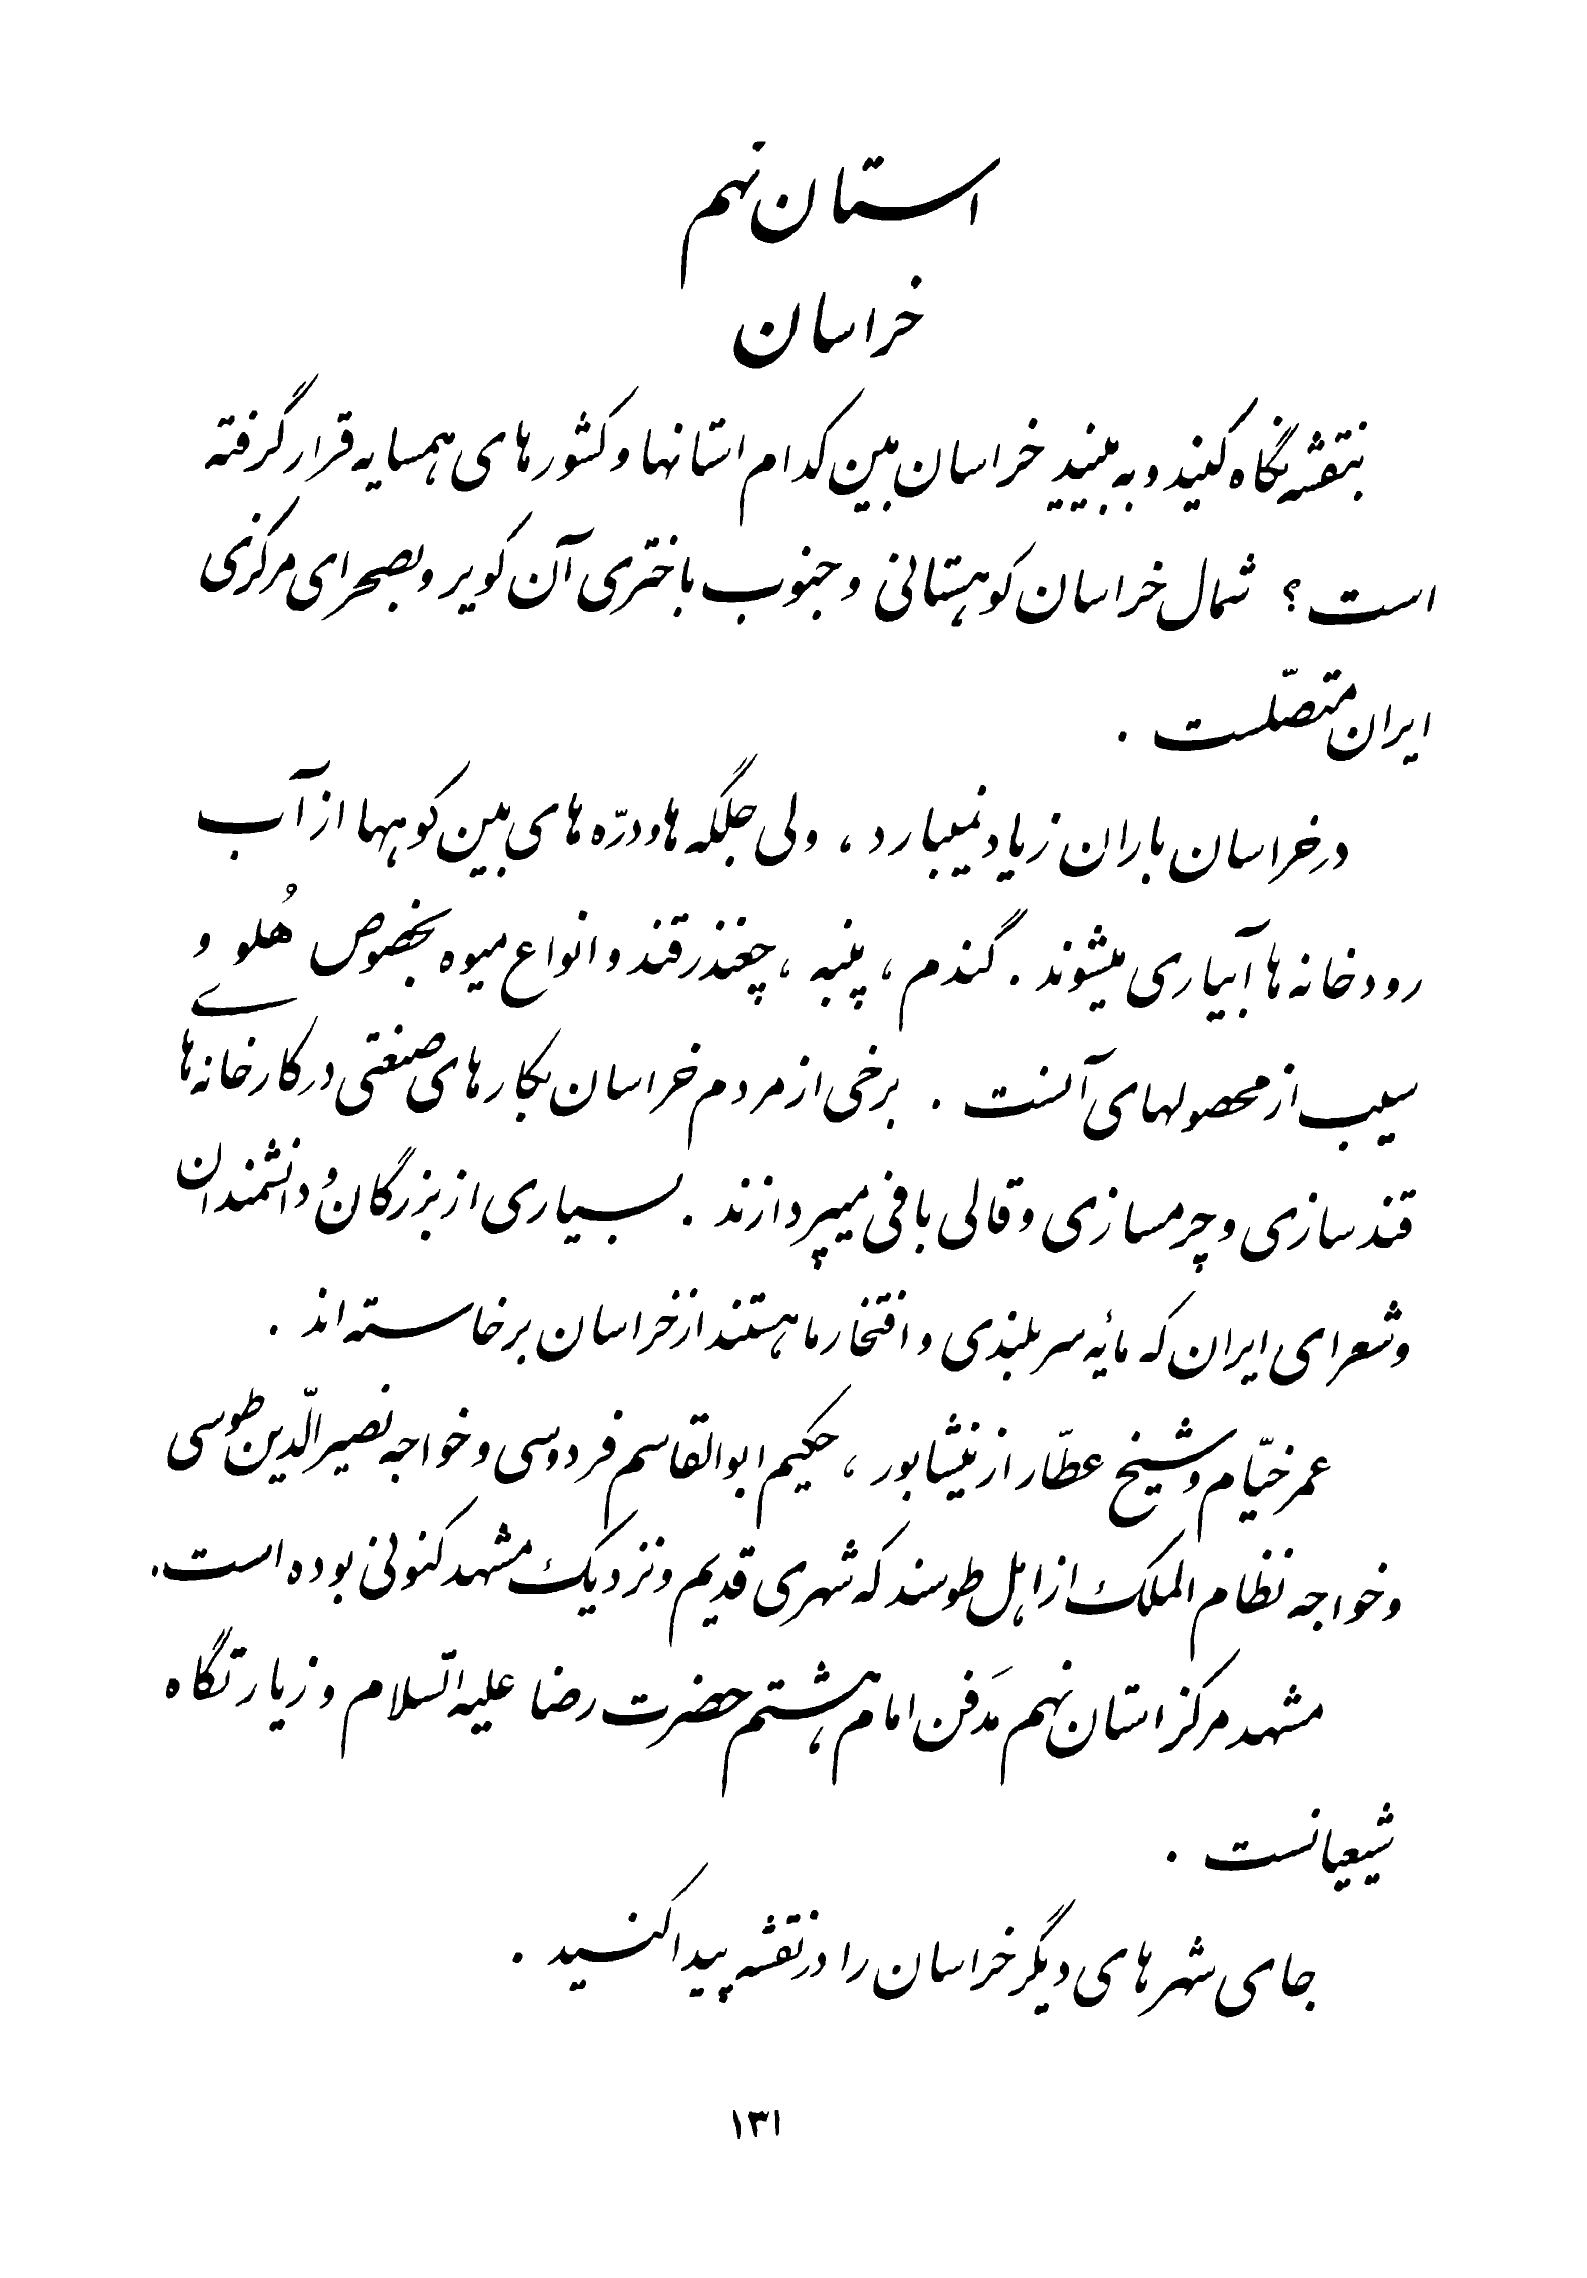 استان نهم
خراسان
بنقشه نگاه کنید و به بینید خراسان بین کدام استانها و کشورهای همسایه قرار گرفته
است؟ شمال خراسان کوهستانی و جنوب باختری آن کویر و بصحرای مرکزی
ایران متصّلست .
در خراسان باران زیاد نمیبارد ، ولی جلگه ها و درّه های بین کوهها از آب
رودخانه ها آبیاری میشوند . گندم ، پنبه ، چغندر قند و انواع میوه بخصوص هُلو و
سیب از محصولهای آنست . برخی از مردم خراسان بکارهای صنعتی در کارخانه ها
قندسازی و چرمسازی و قالی بافی میپردازند . بسیاری از بزرگان و دانشمندان
و شعرای ایران که مایٔه سربلندی و افتخار ما هستند از خراسان برخاسته اند .
عمر خیّام و شیخ عطّار از نیشابور ، حکیم ابوالقاسم فردوسی و خواجه نصیرالّدین طوسی
و خواجه نظام الملک از اهل طوسند که شهری قدیم و نزدیک مشهد کنونی بوده است.
مشهد مرکز استان نهم مَدفن امام هشتم حضرت رضا علیه السّلام و زیارتگاه
شیعیانست .
جای شهرهای دیگر خراسان را در نقشه پیدا کنید .
۱۳۱